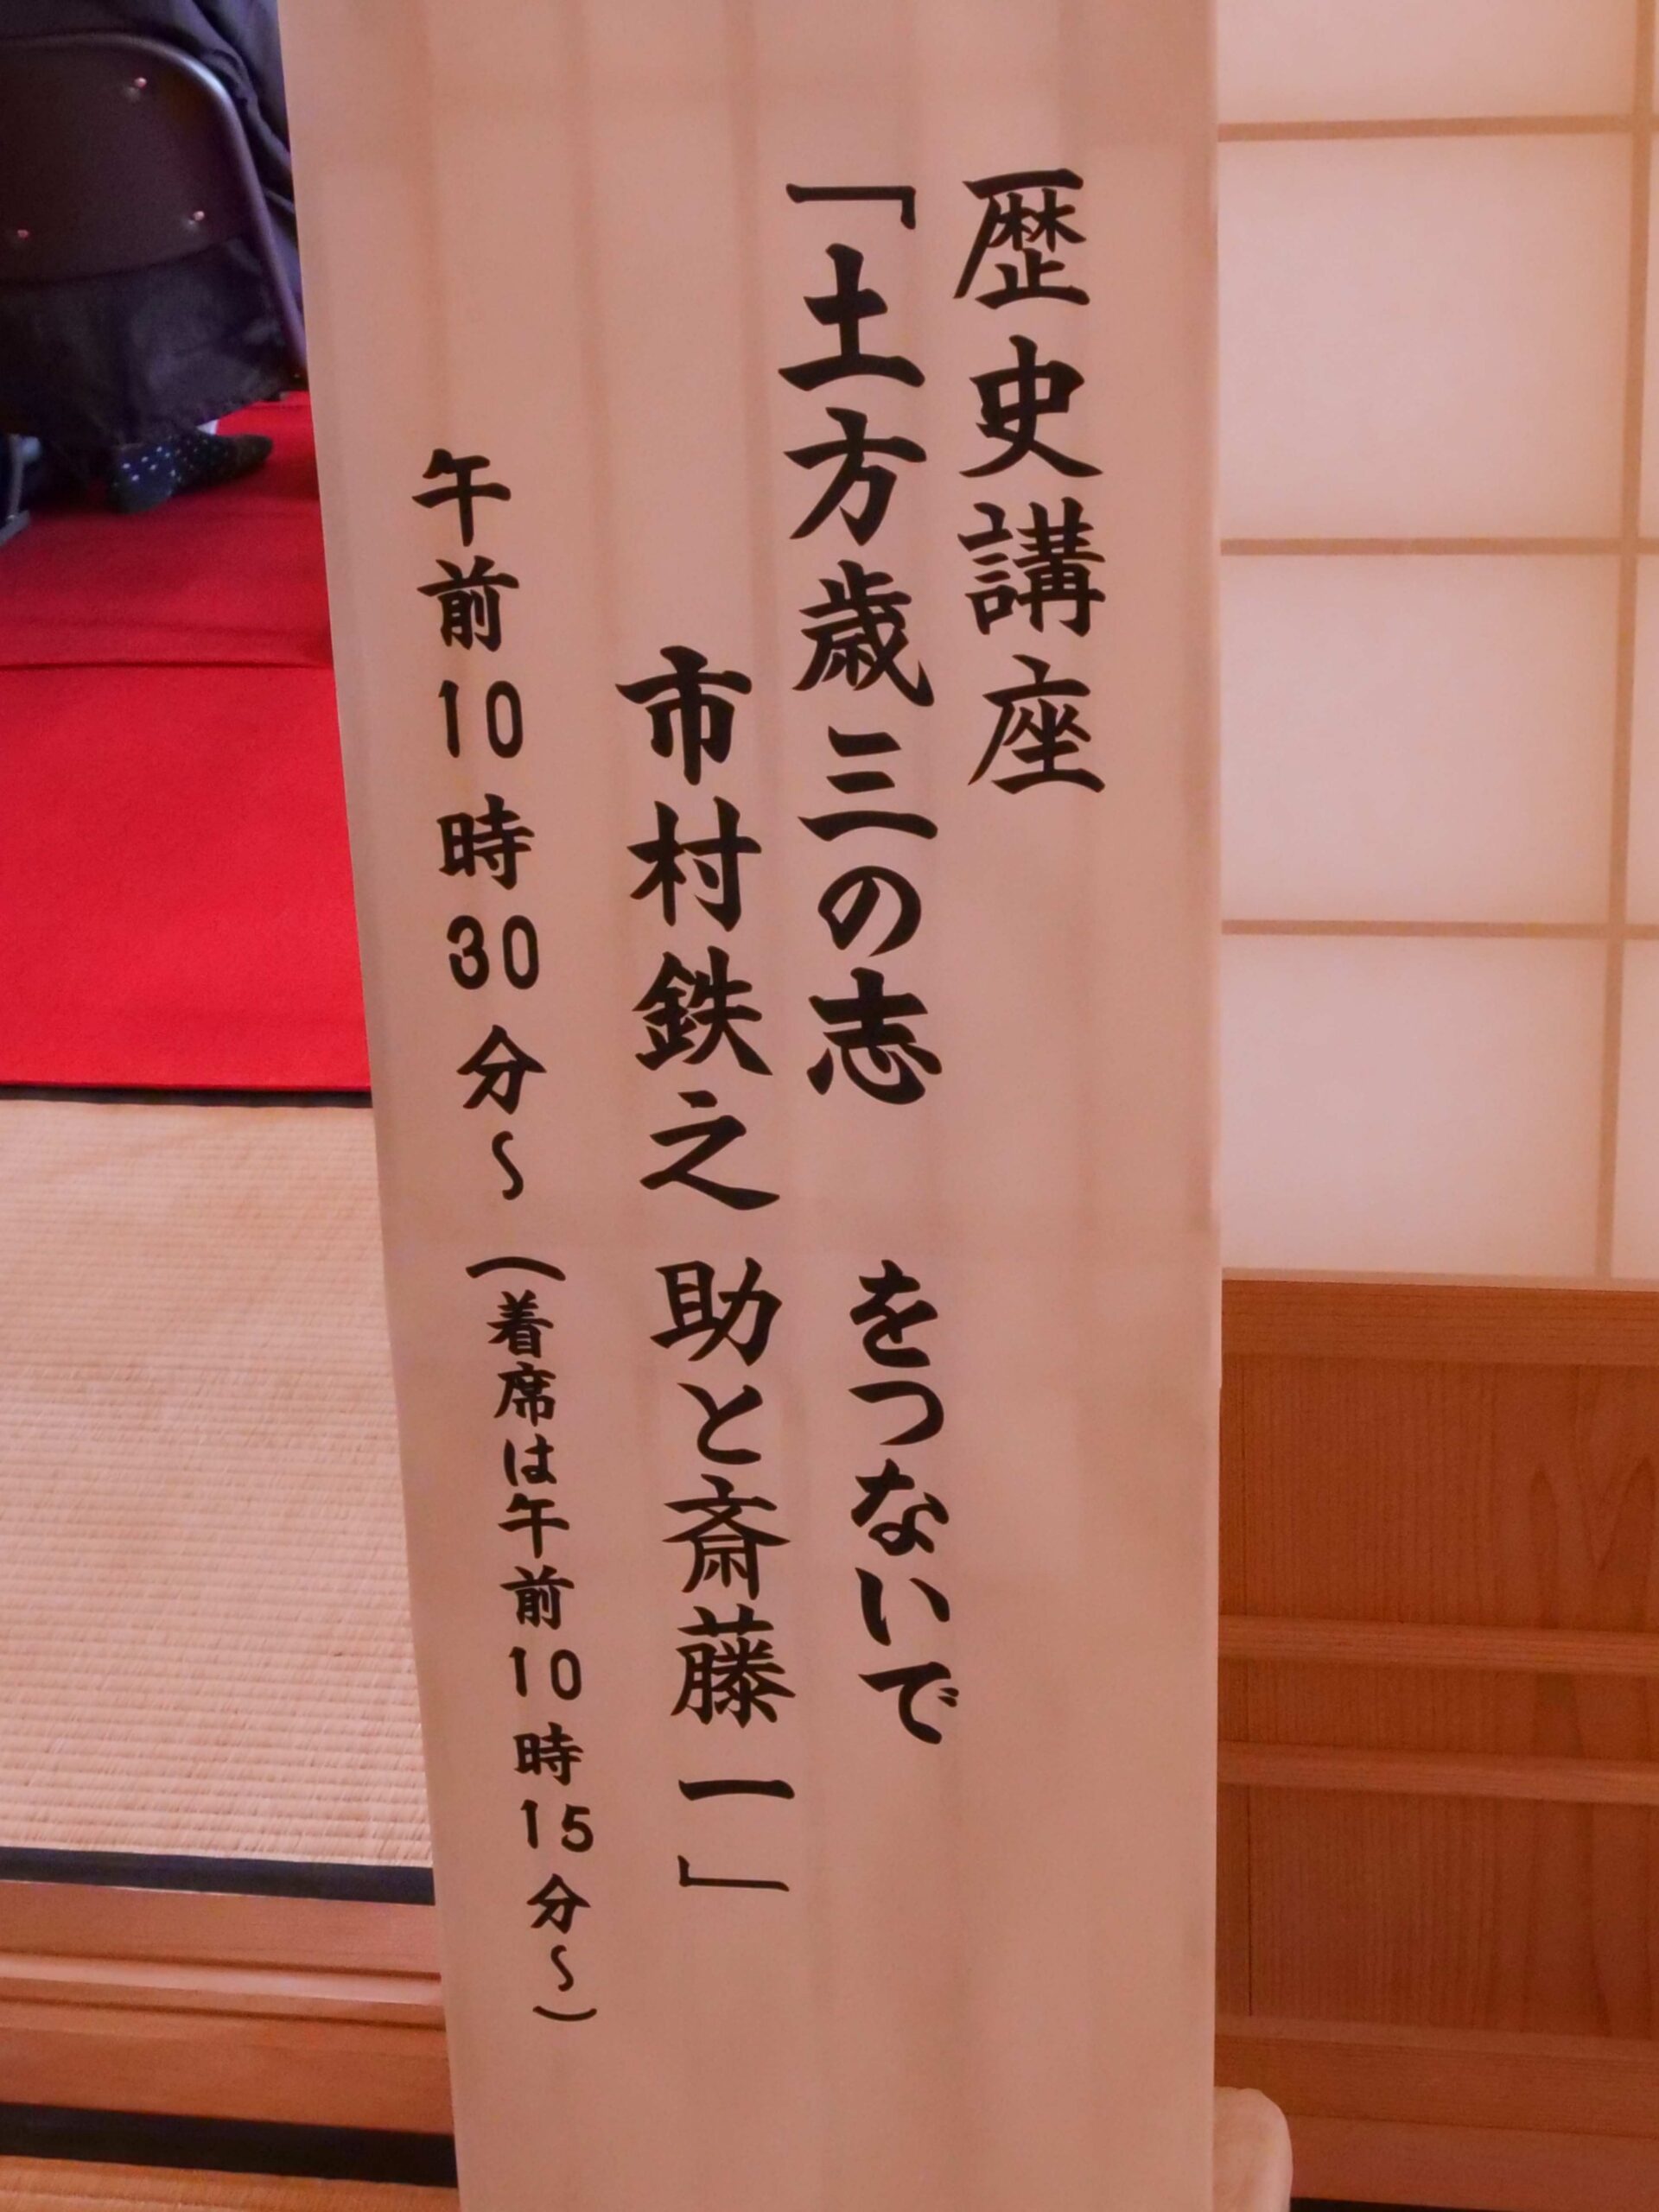 歴史講座
「土方歳三の志 をつないで
市村鉄之助と斎藤一」
午前10時30分〜(着席は午前10時15分〜)